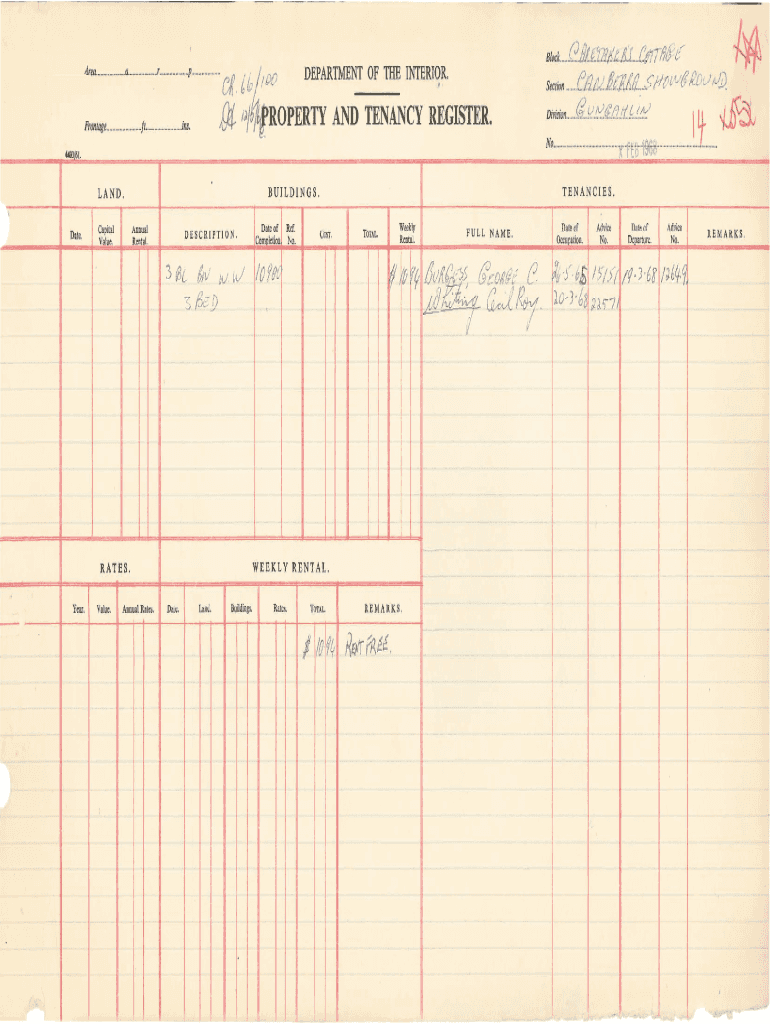 Area............a............r............p............
CR. 66/100
DEPARTMENT OF THE INTERIOR.
Block CARETAKER'S COTTAGE
Section CANBERRA SHOWGROUND.
PROPERTY AND TENANCY REGISTER.
Division GUNGAHLIN
14
Frontage............ft............ins.
No.
FEB 1968
4400/61.
LAND. BUILDINGS. TENANCIES.
Date. Capital Value. Annual Rental. DESCRIPTION. Date of Completion. Ref. No. COST. TOTAL. Weekly Rental. FULL NAME. Date of Occupation. Advice No. Date of Departure. Advice No. REMARKS.
3 BC BN WW 10900 $ 10 94 BURGESS, GEORGE C. 26-5-65 15151 19-3-68 12649.
3 BED Whiting Cecil Roy. 20-3-68 22571
RATES. WEEKLY RENTAL.
Year. Value. Annual Rates. Date. Land. Buildings. Rates. TOTAL. REMARKS.
$ 10 94 RENT FREE.